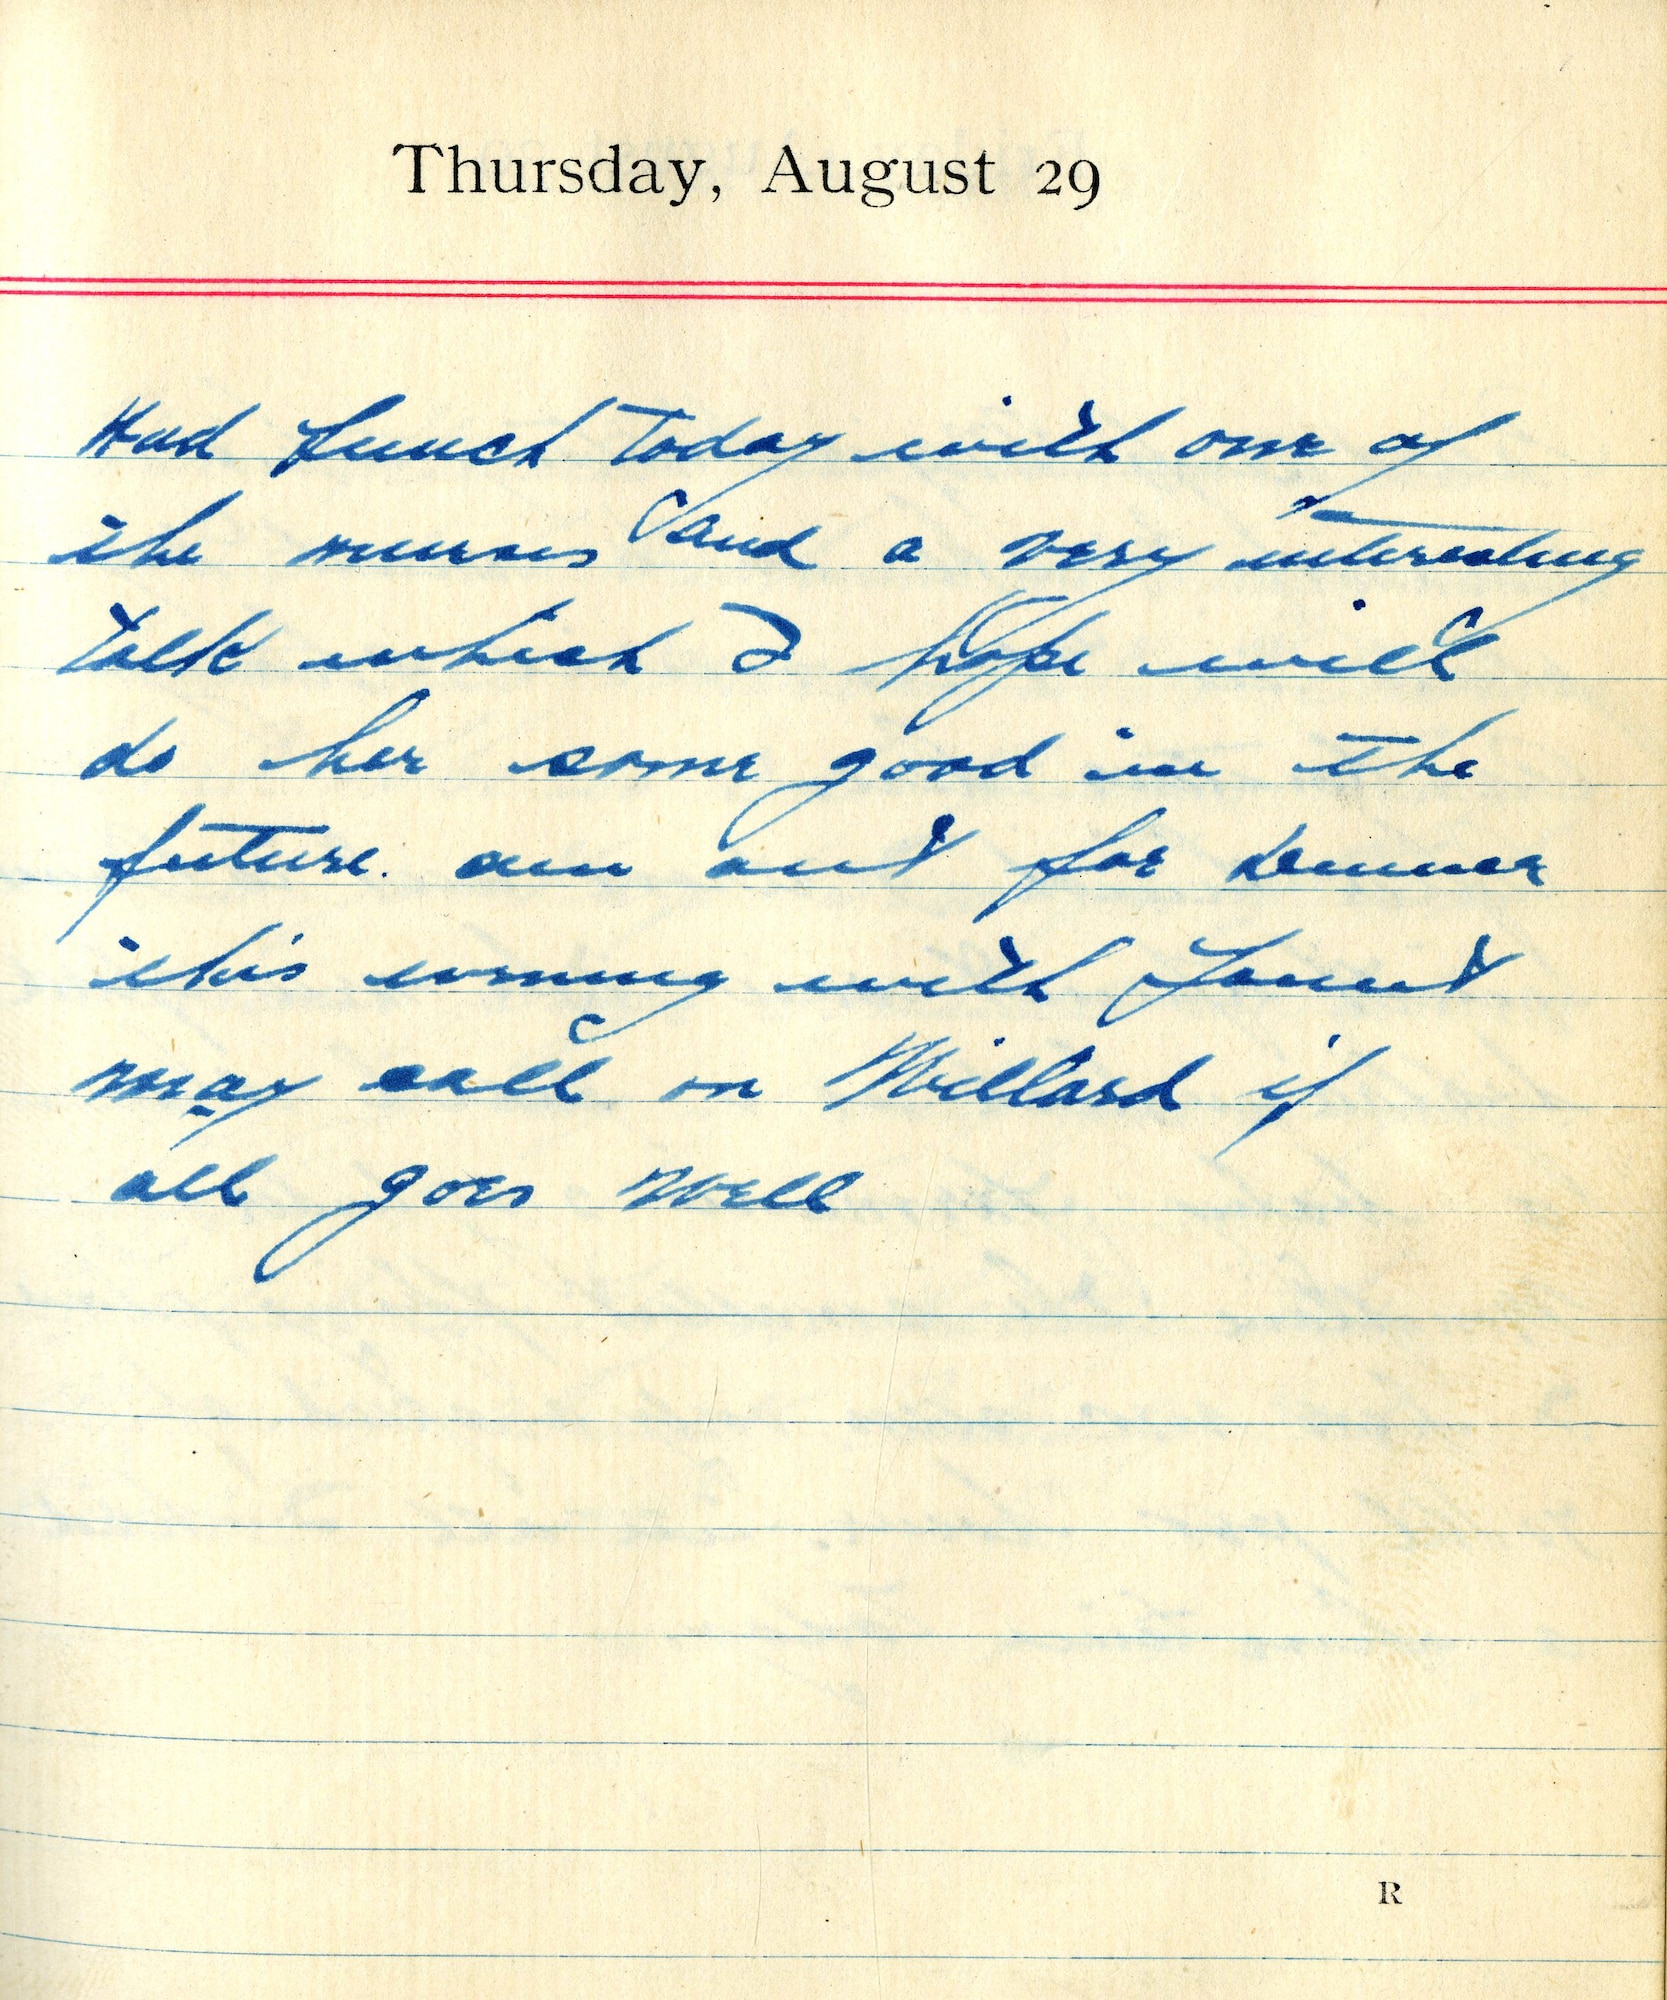 Thursday, August 29
Had lunch today with one of
the nurses and a very interesting
talk which I hope will
do her some good in the
future. am out for dinner
this evening with
may call on Willard if
all goes well
R